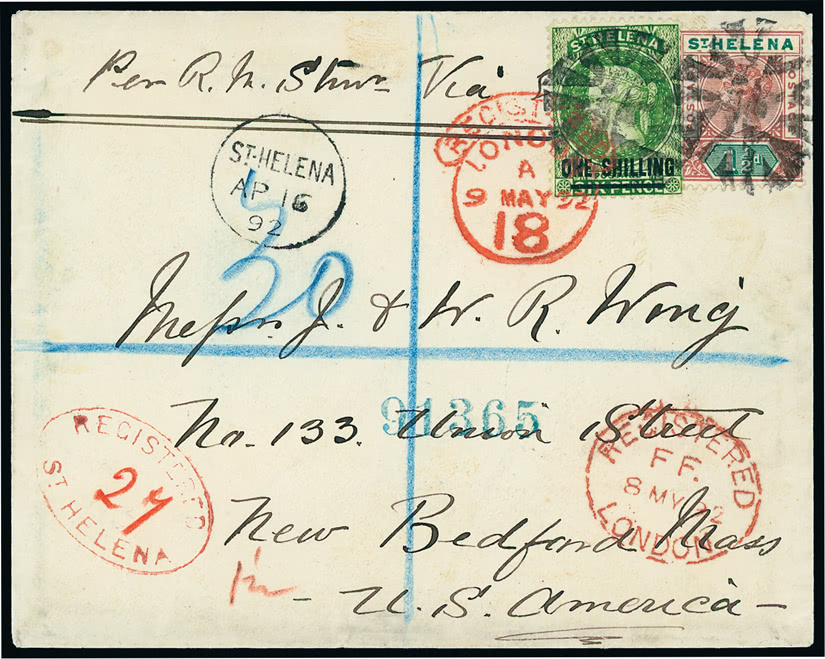 Per R. M. Str Via
ST HELENA
ONE SHILLING
SIXPENCE
ST HELENA
POSTAGE
POSTAGE
1½d
REGISTERED
LONDON
A
9 MAY 92
18
ST. HELENA
AP 16
92
20
Messrs. J. & W. R. Wing
No. 133. Union Street
91365
REGISTERED
FF.
8 MY 92
LONDON
REGISTERED
27
ST HELENA
New Bedford Mass
- U. S. America -